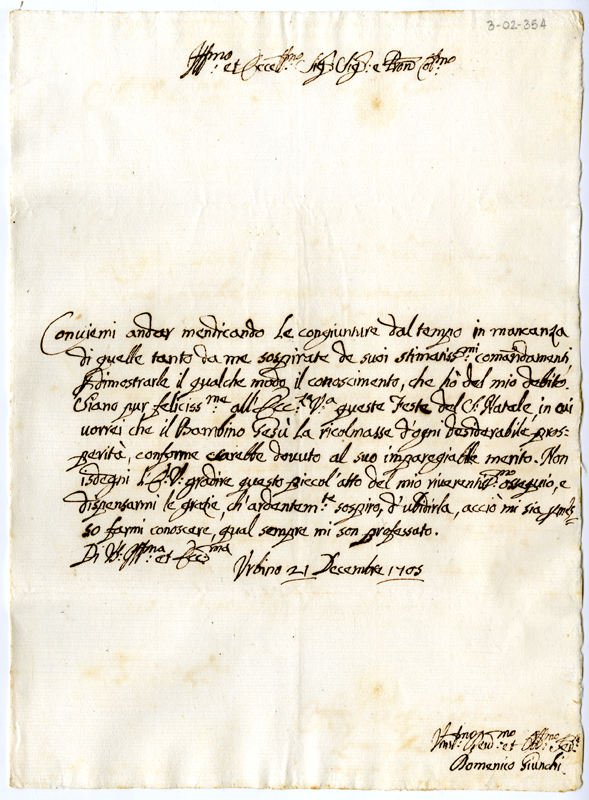 3-02-354
Ill.mo et Ecce.mo Sig.r Sig.r e Pron Col.mo
Conviemi andar mendicando le congiunture dal tempo in mancanza
di quelle tanto da me sospirate de suoi stimatiss.mi comandamenti
p dimostrarle il qualche modo il conoscimento, che hò del mio debito.
Siano pur feliciss.me all' Ecc.za V.a queste Feste del S. Natale in cui
vorrei che il Bambino Gesù la ricolmasse d'ogni desiderabile pros-
perità, conforme sarebbe dovuto al suo impareggiabile merito. Non
isdegni l'E. V. gradire questo piccol' atto del mio riverentis.mo ossequio, e
dispensarmi le grazie, ch' ardentem.te sospiro, d'ubidirla, acciò mi sia pmes-
so farmi conoscere, qual sempre mi son professato.
Di V. Ill.ma et Ecc.ma
Urbino 21 Decembre 1705
Dev.mo et Obl.mo Ser.
Domenico Giunchi